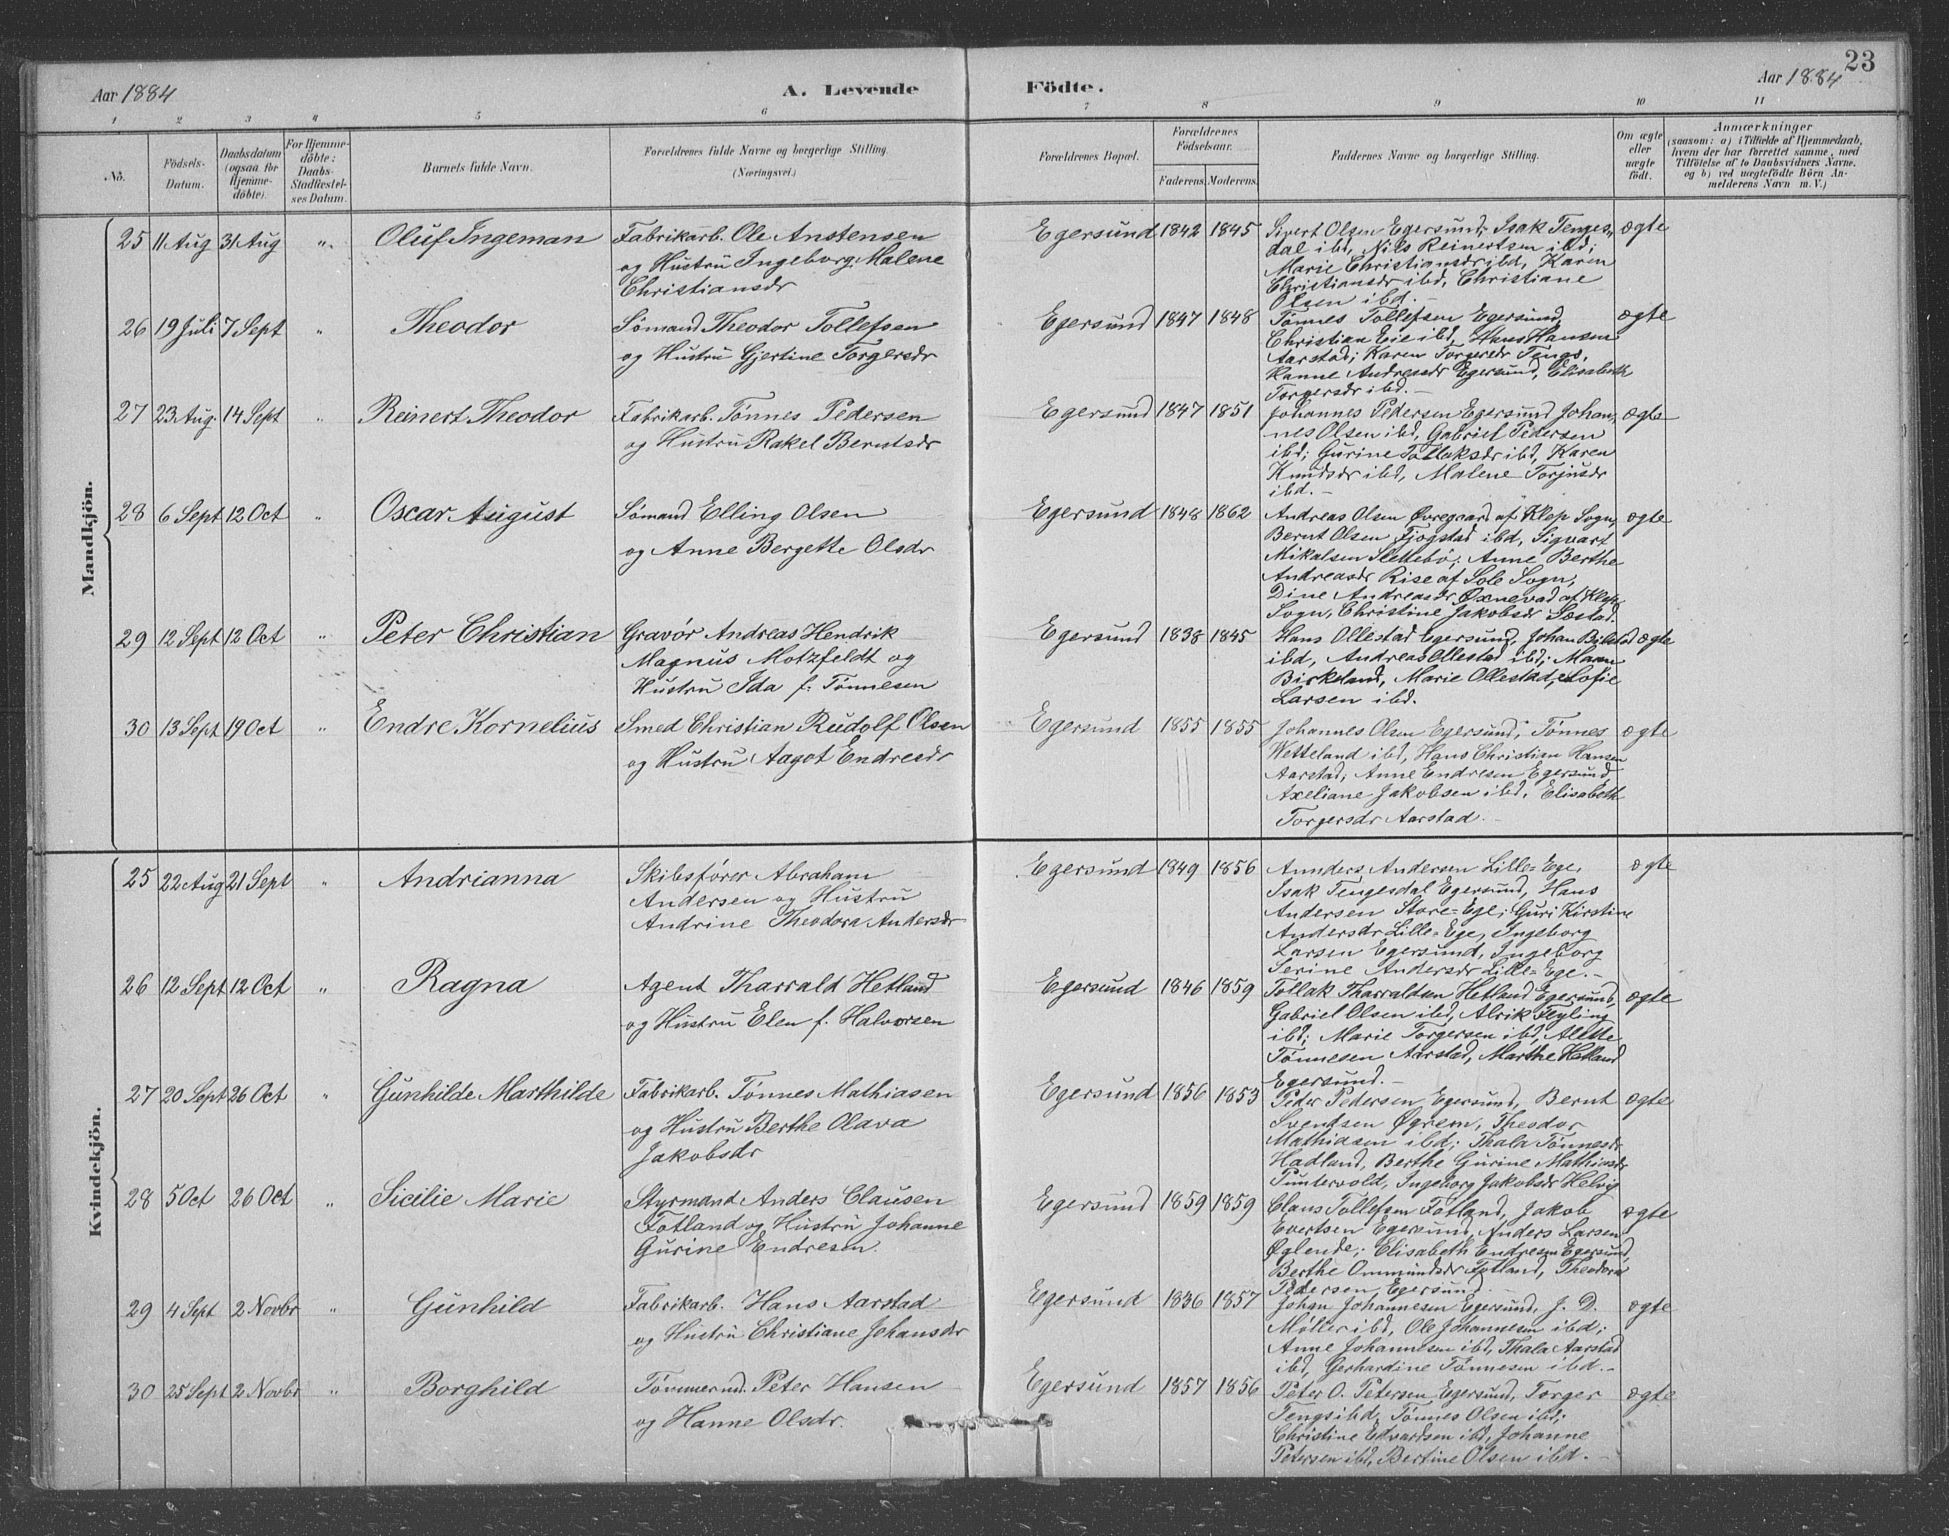 23
Aar 1884
A. Levende Födte.
Aar 1884
1 2 3 4 5 6 7 8 9 10 11
No.
Födsels-Datum.
Daabsdatum (ogsaa for Hjemme-döbte).
For Hjemme-döbte: Daabs-Stadfæstel-ses Datum.
Barnets fulde Navn.
Forældrenes fulde Navne og borgerlige Stilling.
(Næringsvei.)
Forældrenes Bopæl.
Forældrenes Födselsaar.
Faderens. Moderens.
Faddernes Navne og borgerlige Stilling.
Om ægte eller uægte födt.
Anmærkninger
(saasom: a) i Tilfælde af Hjemmedaab, hvem der har forrettet samme, med Tilföielse af to Daabsvidners Navne, og b) ved uægtefödte Börn An-melderens Navn m. V.)
Mandkjön.
25 11 Aug 31 Aug " Oluf Ingeman Fabrikarb. Ole Anstensen Egersund 1842 1845 Sivert Olsen Egersund, Isak Tenges- ægte
og Hustru Ingeborg Malene dal ibd, Nils Reinertsen ibd;
Christiansdr Marie Christiansdr ibd, Karen
Christiansdr ibd, Christiane
Olsen ibd.
26 19 Juli 7 Sept " Theodor Sømand Theodor Tollefsen Egersund 1847 1848 Tønnes Tollefsen Egersund, ægte
og Hustru Gjertine Torgersdr Christian Eie ibd, Hans Hansen
Aarstad; Karen Torgersdr Tengs,
Hanne Andreasdr Egersund, Elisabeth
Torgersdr ibd.
27 23 Aug. 14 Sept " Reinert Theodor Fabrikarb. Tønnes Pedersen Egersund 1847 1851 Johannes Pedersen Egersund, Johan- ægte
og Hustru Rakel Berntsdr nes Olsen ibd, Gabriel Pedersen
ibd; Gurine Tollaksdr ibd, Karen
Knudsdr ibd, Malene Torjusdr
ibd.
28 6 Sept 12 Oct " Oscar August Sømand Elling Olsen Egersund 1848 1862 Andreas Olsen Øvregaard af Klep Sogn, ægte
og Anne Bergette Olsdr Bernt Olsen Fjogstad ibd, Sigvart
Mikalsen Slettebø; Anne Berthe
Andreasdr Rise af Sole Sogn,
Dine Andreasdr Øxnevad af Klep
Sogn, Christine Jakobsdr Sæstad.
29 12 Sept 12 Oct " Peter Christian Gravør Andreas Hendrik Egersund 1838 1845 Hans Ollestad Egersund, Johan Bilstad ægte
Magnus Motzfeldt og ibd, Andreas Ollestad ibd; Maren
Hustru Ida f. Tønnesen Birkeland, Marie Ollestad, Sofie
Larsen ibd.
30 13 Sept 19 Oct " Endre Kornelius Smed Christian Rudolf Olsen Egersund 1855 1855 Johannes Olsen Egersund, Tønnes ægte
og Hustru Aagot Endresdr Wetteland ibd, Hans Christian Hansen
Aarstad; Anne Endresen Egersund
Axeliane Jakobsen ibd, Elisabeth
Torgersdr Aarstad.
Kvindekjön.
25 22 Aug 21 Sept " Andrianna Skibsfører Abraham Egersund 1849 1856 Annders Andersen Lille-Ege, ægte
Andersen og Hustru Isak Tengesdal Egersund, Hans
Andrine Theodora Andersdr Andersen Store-Ege; Guri Kirstine
Andersdr Lille-Ege, Ingeborg
Larsen Egersund, Ingeborg
Serine Andersdr Lille-Ege.
26 12 Sept 12 Oct " Ragna Agent Tharrald Hetland Egersund 1846 1859 Tollak Tharraldsen Hetland Egersund, ægte
og Hustru Elen f. Halvorsen Gabriel Olsen ibd, Alrik Feyling
ibd; Marie Torgersen ibd, Alette
Tønnesen Aarstad, Marthe Hetland
Egersund.
27 20 Sept 26 Oct " Gunhilde Marthilde Fabrikarb. Tønnes Mathiasen Egersund 1856 1853 Peder Pedersen Egersund, Bernt ægte
og Hustru Berthe Olava Svendsen Øgrem, Theodor
Jakobsdr Mathiasen ibd; Thala Tønnesdr
Hadland, Berthe Gurine Mathiasdr
Puntervold, Ingeborg Jakobsdr Helvig
28 5 Oct 26 Oct " Sicilie Marie Styrmand Anders Clausen Egersund 1859 1859 Claus Tollefsen Fotland, Jakob ægte
Fotland og Hustru Johanne Evertsen Egersund, Anders Larsen
Gurine Endresen. Øglende; Elisabeth Endresen Egersund,
Berthe Ommundsdr Fotland, Theodora
Pedersen, Egersund.
29 4 Sept 2 Novbr " Gunhild Fabrikarb. Hans Aarstad Egersund 1836 1857 Johan Johannesen Egersund, J. D. ægte
og Hustru Christiane Johansdr Møller ibd, Ole Johannesen ibd;
Anne Johannesen ibd, Thala Aarstad
ibd, Gerhardine Tønnesen ibd.
30 25 Sept 2 Novbr " Borghild Tømmermd. Peter Hansen Egersund 1857 1856 Peter O. Petersen Egersund, Torger ægte
og Hanne Olsdr. Tengs ibd, Tønnes Olsen ibd;
Christine Edvardsen ibd, Johanne
Petersen ibd, Bertine Olsen ibd.